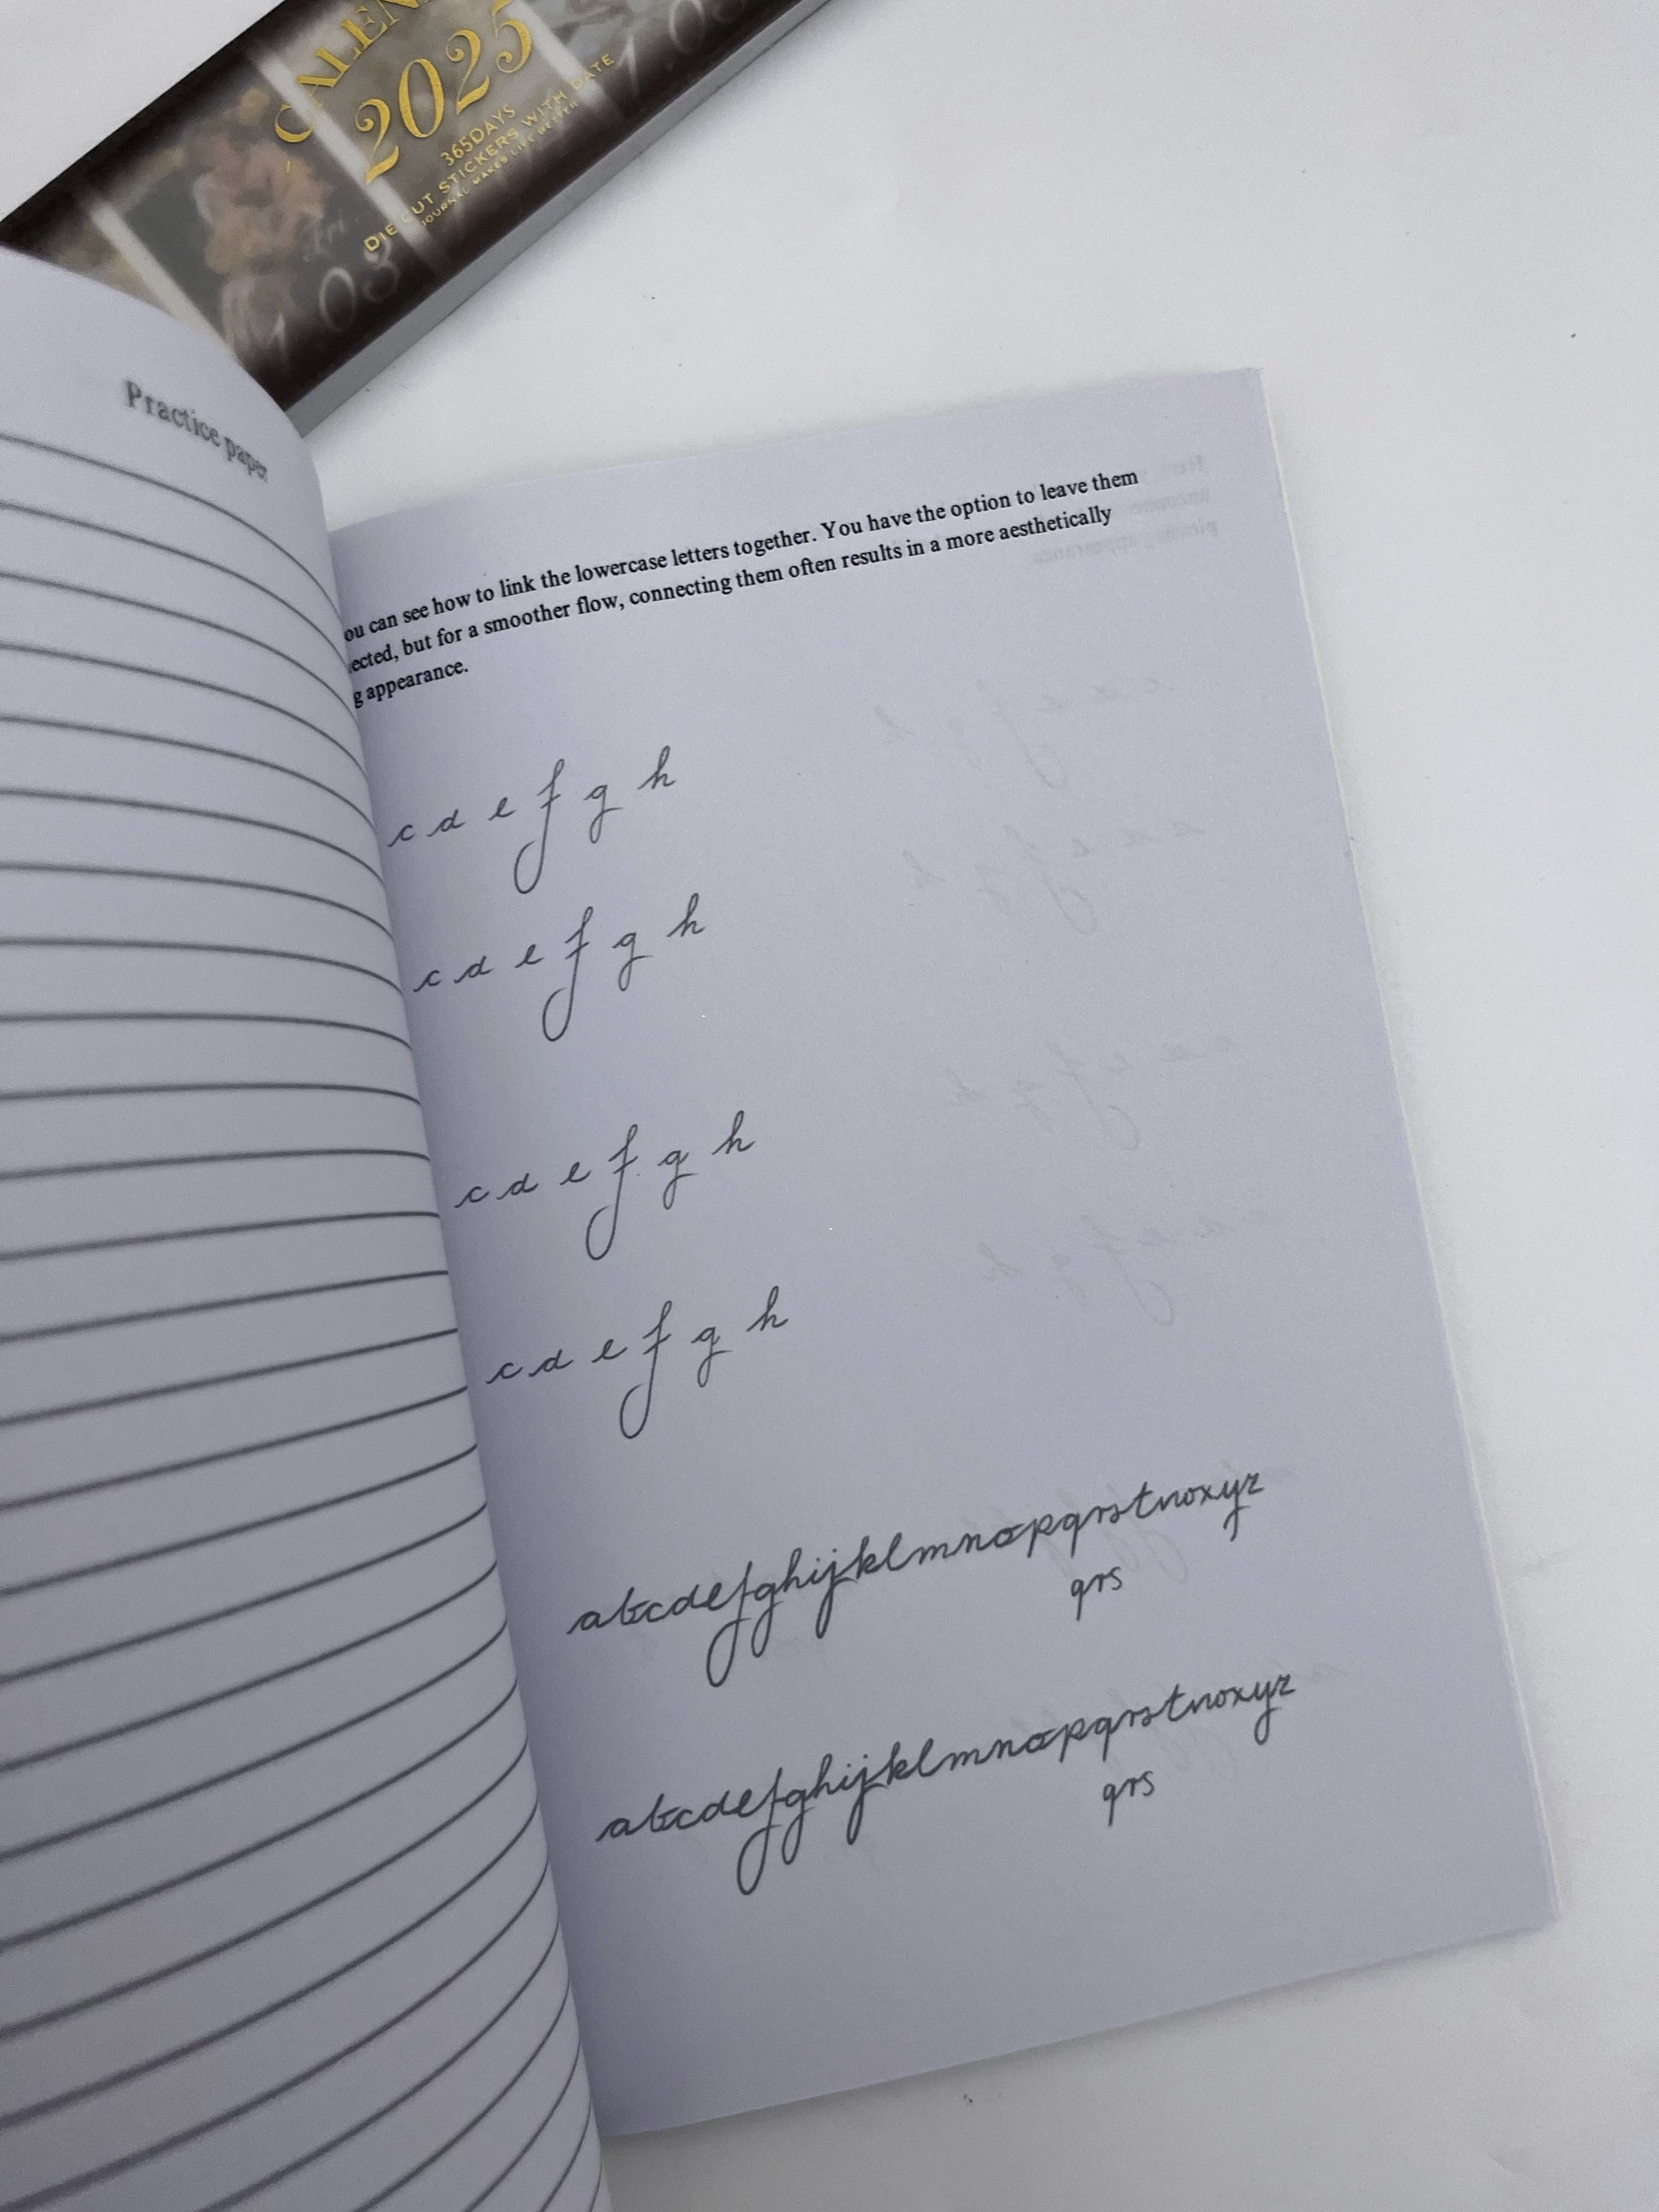 CALEN
2025
365DAYS
DIE CUT STICKERS WITH DATE
JOURNAL MAKES LIFE BETTER
Fri.
08
Practice paper
ou can see how to link the lowercase letters together. You have the option to leave them
ected, but for a smoother flow, connecting them often results in a more aesthetically
g appearance.
c d e f g h
c d e f g h
c d e f g h
c d e f g h
abcdefghijklmnopqrstnoxyz
qrs
abcdefghijklmnopqrstnoxyz
qrs